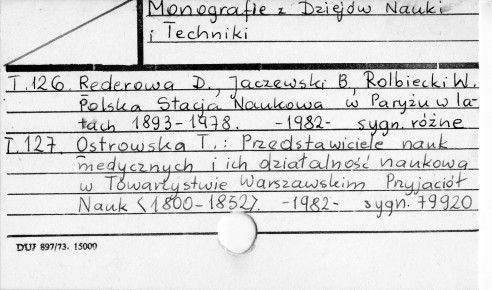 Monografie z Dziejów Nauki
i Techniki
T.126. Rederowa D., Jaczewski B, Rolbiecki W.
Polska Stacja Naukowa w Paryżu w la-
tach 1893-1978. -1982- sygn. różne
T.127. Ostrowska T.: Przedstawiciele nauk
medycznych i ich działalność naukowa
w Towarzystwie Warszawskim Przyjaciół
Nauk <1800-1832>. -1982- sygn. 79920
DUJ 897/73. 15000